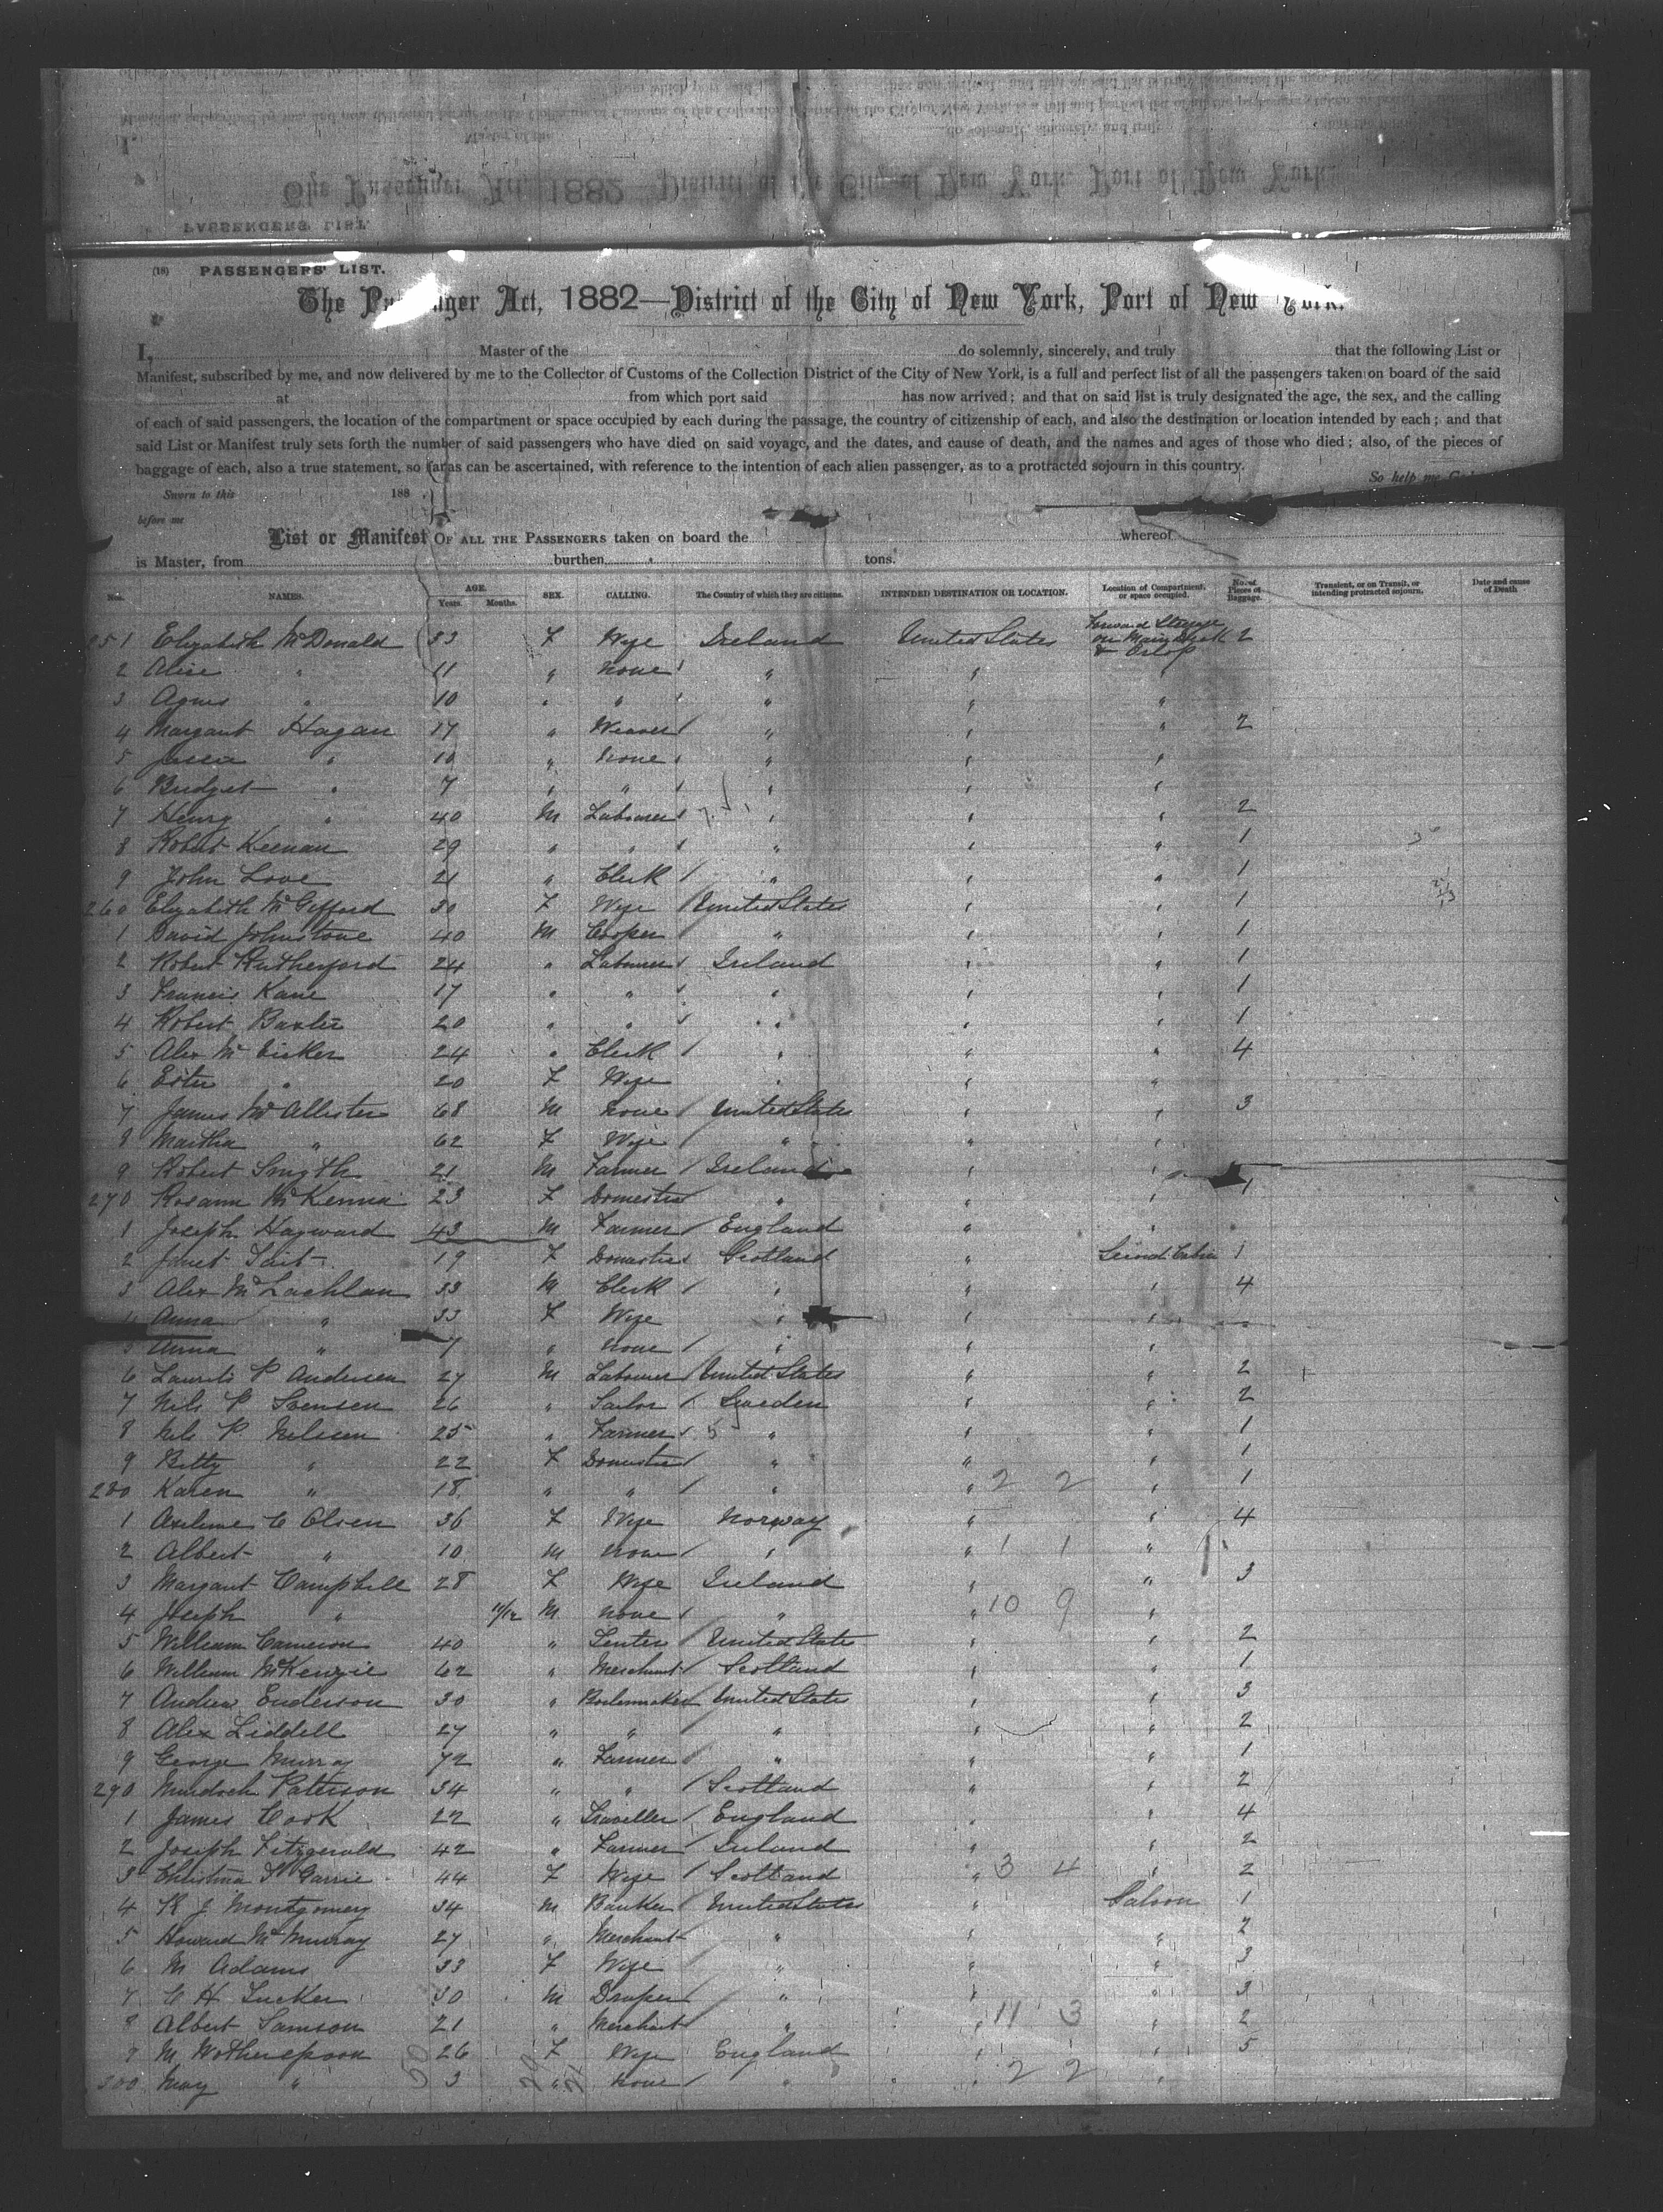 (18) PASSENGERS' LIST.
The Passenger Act, 1882—District of the City of New York, Port of New York.
I, Master of the do solemnly, sincerely, and truly that the following List or
Manifest, subscribed by me, and now delivered by me to the Collector of Customs of the Collection District of the City of New York, is a full and perfect list of all the passengers taken on board of the said
at from which port said has now arrived; and that on said list is truly designated the age, the sex, and the calling
of each of said passengers, the location of the compartment or space occupied by each during the passage, the country of citizenship of each, and also the destination or location intended by each; and that
said List or Manifest truly sets forth the number of said passengers who have died on said voyage, and the dates, and cause of death, and the names and ages of those who died; also, of the pieces of
baggage of each, also a true statement, so far as can be ascertained, with reference to the intention of each alien passenger, as to a protracted sojourn in this country.
So help me God
Sworn to this 188
before me
List or Manifest OF ALL THE PASSENGERS taken on board the whereof
is Master, from burthen tons.
Nos. NAMES. AGE. Years. Months. SEX. CALLING. The Country of which they are citizens. INTENDED DESTINATION OR LOCATION. Location of Compartment, or space occupied. No. of Pieces of Baggage. Transient, or on Transit, or intending protracted sojourn. Date and cause of Death
251 Elizabeth McDonald 33 F Wife Ireland United States Forward Steerage on Main Deck & Orlop 2
2 Alice " 11 " None " " "
3 Agnes " 10 " " " " "
4 Margaret Hagan 17 " Weaver " " " 2
5 " 10 " None " " "
6 Bridget " 7 " " " " "
7 Henry " 40 M Labourer " " " 2
8 Robert Keenan 29 " " " " " 1
9 John Love 21 " Clerk " " " 1
260 Elizabeth McGifford 30 F Wife United States " " 1
1 David Johnstone 40 M Cooper " " " 1
2 Robert Rutherford 24 " Labourer Ireland " " 1
3 Francis Kane 17 " " " " " 1
4 Robert Baxter 20 " " " " " 1
5 Alex McVicker 24 " Clerk " " " 4
6 Ester " 20 F Wife " " "
7 James McAllister 68 M None United States " " 3
8 Martha " 62 F Wife " " "
9 Robert Smyth 21 M Farmer Ireland " "
270 Rosann McKenna 23 F Domestic " " " 1
1 Joseph Hayward 43 M Farmer England " "
2 Janet Tait 19 F Domestic Scotland " Second Cabin 1
3 Alex McLachlan 33 M Clerk " " " 4
4 Anna " 33 F Wife " " "
5 Anna " 7 " None " " "
6 Laurits P Andersen 27 M Labourer United States " " 2
7 Nils P Svensen 26 " Sailor Sweden " " 2
8 Nils P. Nelssen 25 " Farmer " " " 1
9 Betty " 22 F Domestic " " " 1
280 Karen " 18 " " " " 2 2 " 1
1 C Olsen 36 F Wife Norway " " 4
2 Albert " 10 M None " " 1 1 "
3 Margaret Campbell 28 F Wife Ireland " " 3
4 Joseph " 11/12 M None " " 10 9 "
5 William Cameron 40 " United States " " 2
6 William McKenzie 62 " Merchant Scotland " " 1
7 Andrew Enderson 30 " Boilermaker United States " " 3
8 Alex Liddell 27 " " " " " 2
9 George Murray 72 " Farmer " " " 1
290 Murdoch Paterson 34 " " Scotland " " 2
1 James Cook 22 " Traveller England " " 4
2 Joseph Fitzgerald 42 " Farmer Ireland " " 2
3 Christina 44 F Wife Scotland " 3 4 " 2
4 R J Montgomery 34 M Banker United States " Saloon 1
5 Howard McMurray 27 " Merchant " " " 2
6 M Adams 33 F Wife " " " 3
7 C H Tucker 30 M Draper " " " 3
8 Albert Samson 21 " Merchant " " 11 3 " 2
9 M Wotherspoon 26 F Wife England " " 5
300 May " 3 " None " " 2 2 "